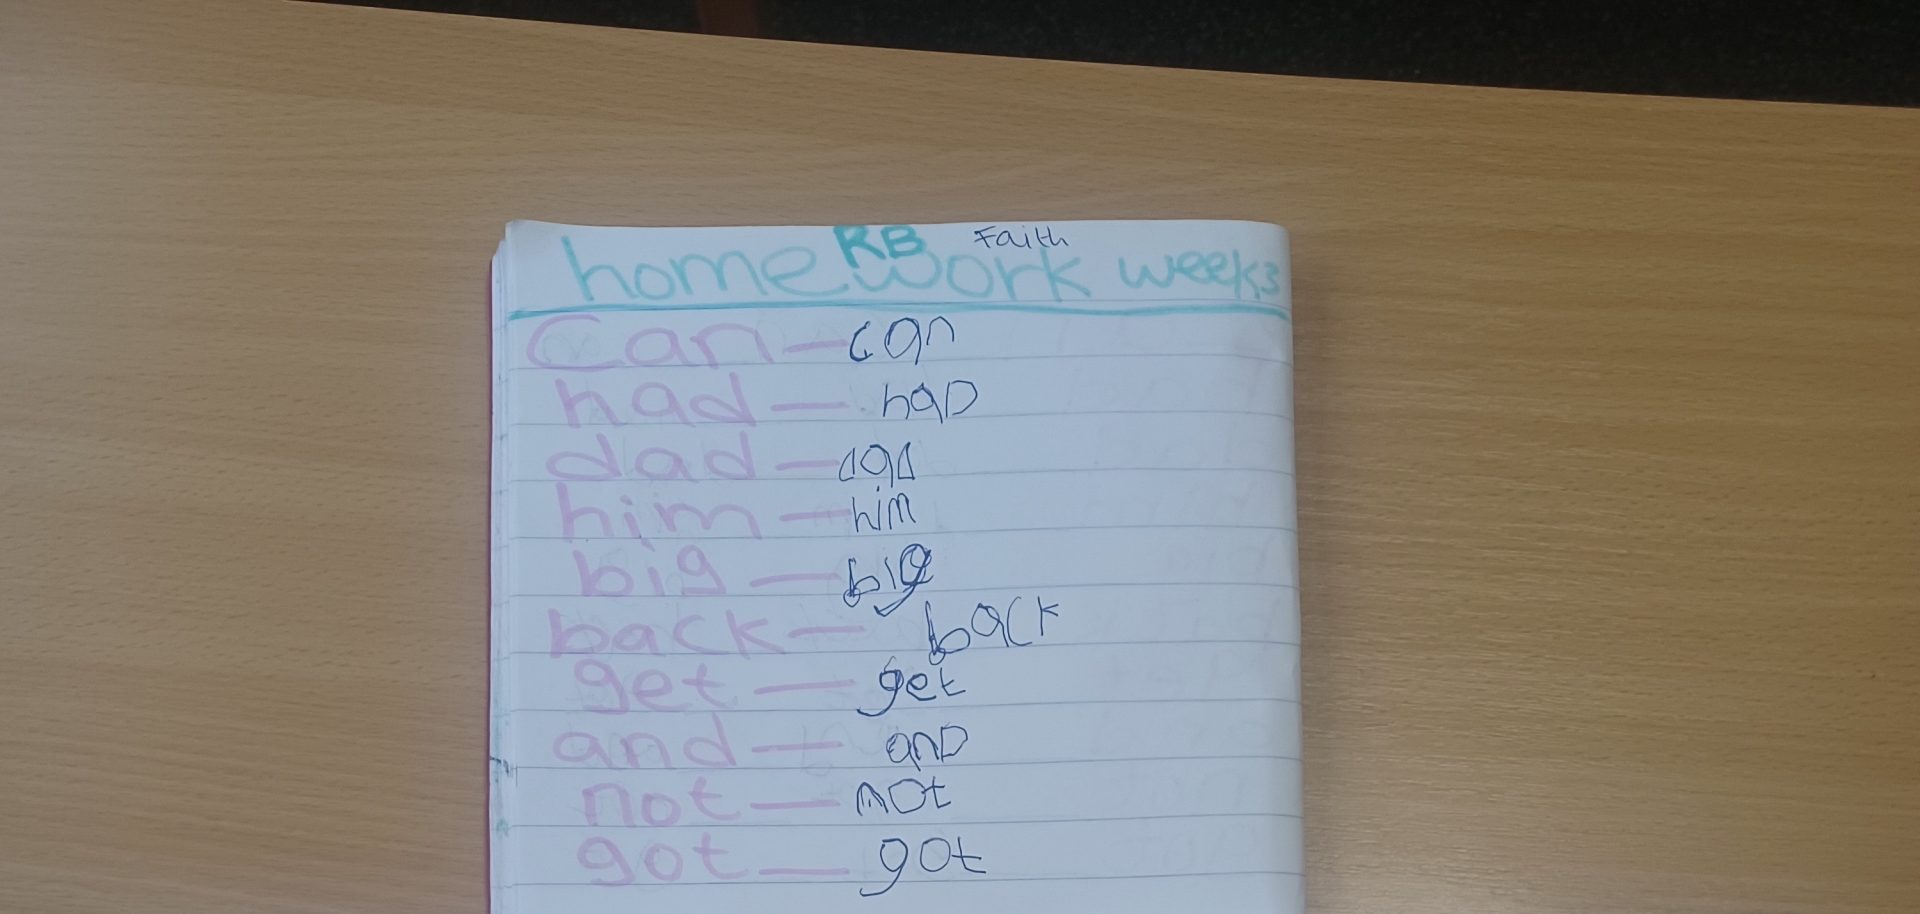 RB Faith
homework week3
Can — can
had — haD
dad — dad
him — him
big — big
back — back
get — get
and — anD
not — not
got — got